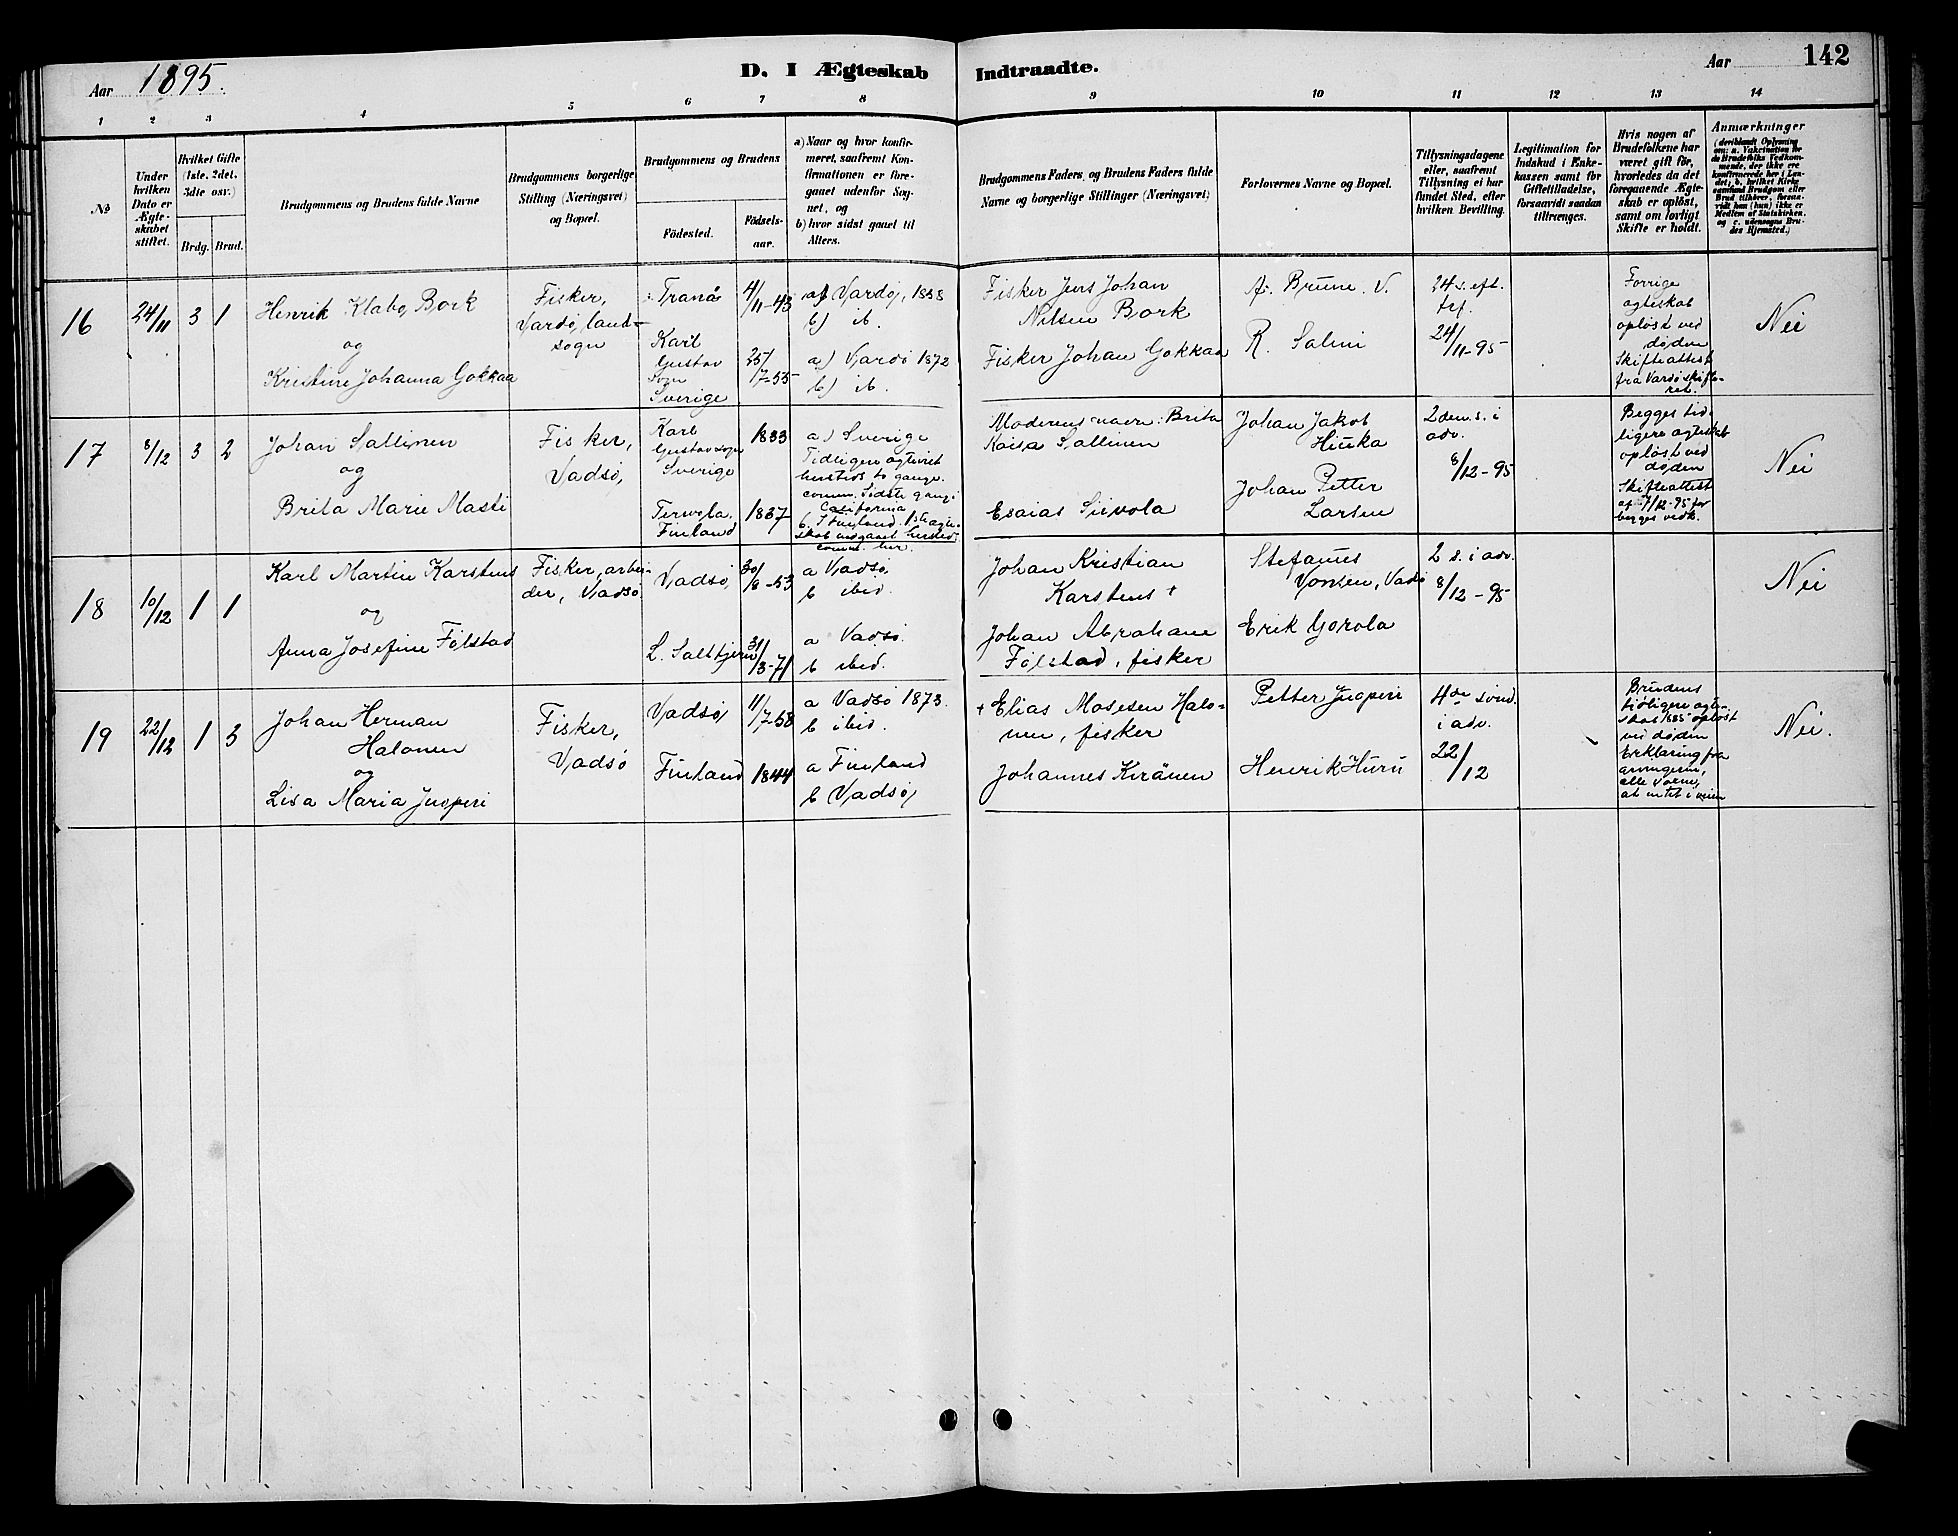 Aar 1895.
D. I Ægteskab Indtraadte.
Aar 142
1 2 3 4 5 6 7 8 9 10 11 12 13 14
No
Under hvilken Dato er Ægteskabet stiftet.
Hvilket Gifte (1ste. 2det. 3dte osv.)
Brdg. Brud.
Brudgommens og Brudens fulde Navne
Brudgommens borgerlige Stilling (Næringsvei) og Bopæl.
Brudgommens og Brudens
Födested.
Födsels-aar.
a) Naar og hvor konfir-
meret, saafremt Kon-
firmationen er fore-
gaaet udenfor Sog-
net, og
b) hvor sidst gaaet til
Alters.
Brudgommens Faders, og Brudens Faders fulde
Navne og borgerlige Stillinger (Næringsvei)
Forlovernes Navne og Bopæl.
Tillysningsdagene
eller, saafremt
Tillysning ei har
fundet Sted, efter
hvilken Bevilling.
Legitimation for
Indskud i Enke-
kassen samt for
Giftetilladelse,
forsaavidt saadan
tiltrænges.
Hvis nogen af
Brudefolkene har
været gift før,
hvorledes da det
foregaaende Ægte-
skab er opløst,
samt om lovligt
Skifte er holdt.
Anmærkninger
(deriblandt Oplysning
om: a. Vakcination for
de Brudefolks Vedkom-
mende, der ikke ere
konfirmerede her i Lan-
det; b. hvilket Kirke-
samfund Brudgom eller
Brud tilhører, forsaa-
vidt han (hun) ikke er
Medlem af Statskirken.
og c. udensogns Bru-
des Hjemsted.)
16
24/11
3 1
Henrik Klabo Bork
og
Kristine Johanna Gokkaa
Fisker,
Vardø, land-
sogn
Tranø
4/11-43
a) Vardø, 1858
b) ib.
Karl
Gustav
Sogn
Sverige
25/7-55
a) Vardø 1872
b) ib.
Fisker Jens Johan
Nilsen Bork
Fisker Johan Gokkaa
A. Brune. V.
R. Salini
24 s. eft.
tref.
24/11-95
Forrige
ægteskab
opløst ved
døden
Skifteattest
fra Vardø skifte-
ret.
Nei
17
8/12
3 2
Johan Sallinen
og
Brita Marie Masti
Fisker,
Vadsø,
Karl
Gustav sogn
Sverige
1833
Terwola.
Finland
1837
a) Sverige
Tidligere ægteviet
hersteds to gange.
comm. Sidste gang i
California
b. I Finland. 1ste ægte-
skab indgaaet hersted.
comm. her.
Moderens navn: Brita
Kaisa Sallinen
Esaias Siivola
Johan Jakob
Hiuka
Johan Petter
Larsen
2den s. i
adv.
8/12-95
Begges tid-
ligere ægteskab
opløst ved
døden
Skifteattest
af 7/12-95 for
begges vedk.
Nei
18
10/12
1 1
Karl Martin Karstens
og
Anna Josefine Følstad
Fisker, arbei-
der, Vadsø
Vadsø,
30/8-53
a Vadsø
b ibid.
L. Saltfjern
31/3-71
a Vadsø.
b ibid.
Johan Kristian
Karstens +
Johan Abraham
Følstad, fisker
Stefanus
Vonsen, Vadsø
Erik Gorola
2 s. i adv.
8/12-95
Nei
19
22/12
1 3
Johan Herman
Halonen
og
Lisa Maria Junperi
Fisker,
Vadsø
Vadsø,
11/7-58
a Vadsø 1873.
b ibid.
Finland
1844
a Finland
b Vadsø,
+ Elias Mosesen Halo-
nen, fisker
Johannes Keränen
Petter Junperi
Henrik Huru
4de sønd.
i adv.
22/12
Brudens
tidligere ægte-
skab 1885 opløst
ved døden
Erklæring fra
arvingerne,
alle voxne,
at intet i veien
Nei.